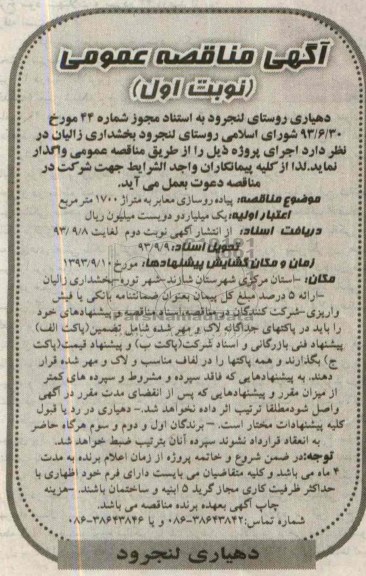 آگهی مناقصه عمومی
(نوبت اول)
دهیاری روستای لنجرود به استناد مجوز شماره ۴۴ مورخ
۹۳/۶/۳۰ شورای اسلامی روستای لنجرود بخشداری زالیان در
نظر دارد اجرای پروژه ذیل را از طریق مناقصه عمومی واگذار
نماید.لذا از کلیه پیمانکاران واجد الشرایط جهت شرکت در
مناقصه دعوت بعمل می آید.
موضوع مناقصه: پیاده روسازی معابر به متراژ ۱۷۰۰ متر مربع
اعتبار اولیه: یک میلیارد و دویست میلیون ریال
دریافت اسناد: از انتشار آگهی نوبت دوم لغایت ۹۳/۹/۸
تحویل اسناد: ۹۳/۹/۹
زمان و مکان گشایش پیشنهادها: مورخ ۱۳۹۳/۹/۱۰
مکان: -استان مرکزی شهرستان شازند-شهر توره-بخشداری زالیان
-ارائه ۵ درصد مبلغ کل پیمان بعنوان ضمانتنامه بانکی یا فیش
واریزی -شرکت کنندگان در مناقصه اسناد مناقصه و پیشنهادهای خود
را باید در پاکتهای جداگانه لاک و مهر شده شامل تضمین(پاکت الف)
پیشنهاد فنی بازرگانی و اسناد شرکت(پاکت ب) و پیشنهاد قیمت(پاکت
ج) بگذارند و همه پاکتها را در لفاف مناسب و لاک و مهر شده قرار
دهند. به پیشنهادهایی که فاقد سپرده و مشروط و سپرده های کمتر
از میزان مقرر و پیشنهادهایی که پس از انقضای مدت مقرر در آگهی
واصل شودمطلقا ترتیب اثر داده نخواهد شد.- دهیاری در رد یا قبول
کلیه پیشنهادات مختار است. - برندگان اول و دوم و سوم هرگاه حاضر
به انعقاد قرارداد نشوند سپرده آنان بترتیب ضبط خواهد شد.
توجه:در ضمن شروع و خاتمه پروژه از زمان اعلام برنده به مدت
۴ ماه می باشد و کلیه متقاضیان می بایست دارای فرم خود اظهاری با
حداکثر ظرفیت کاری مجاز گرید ۵ ابنیه و ساختمان باشند. -هزینه
چاپ آگهی بعهده برنده مناقصه می باشد.
شماره تماس:۳۸۶۴۳۸۴۲-۰۸۶ و یا ۳۸۶۴۳۸۴۶-۰۸۶
دهیاری لنجرود